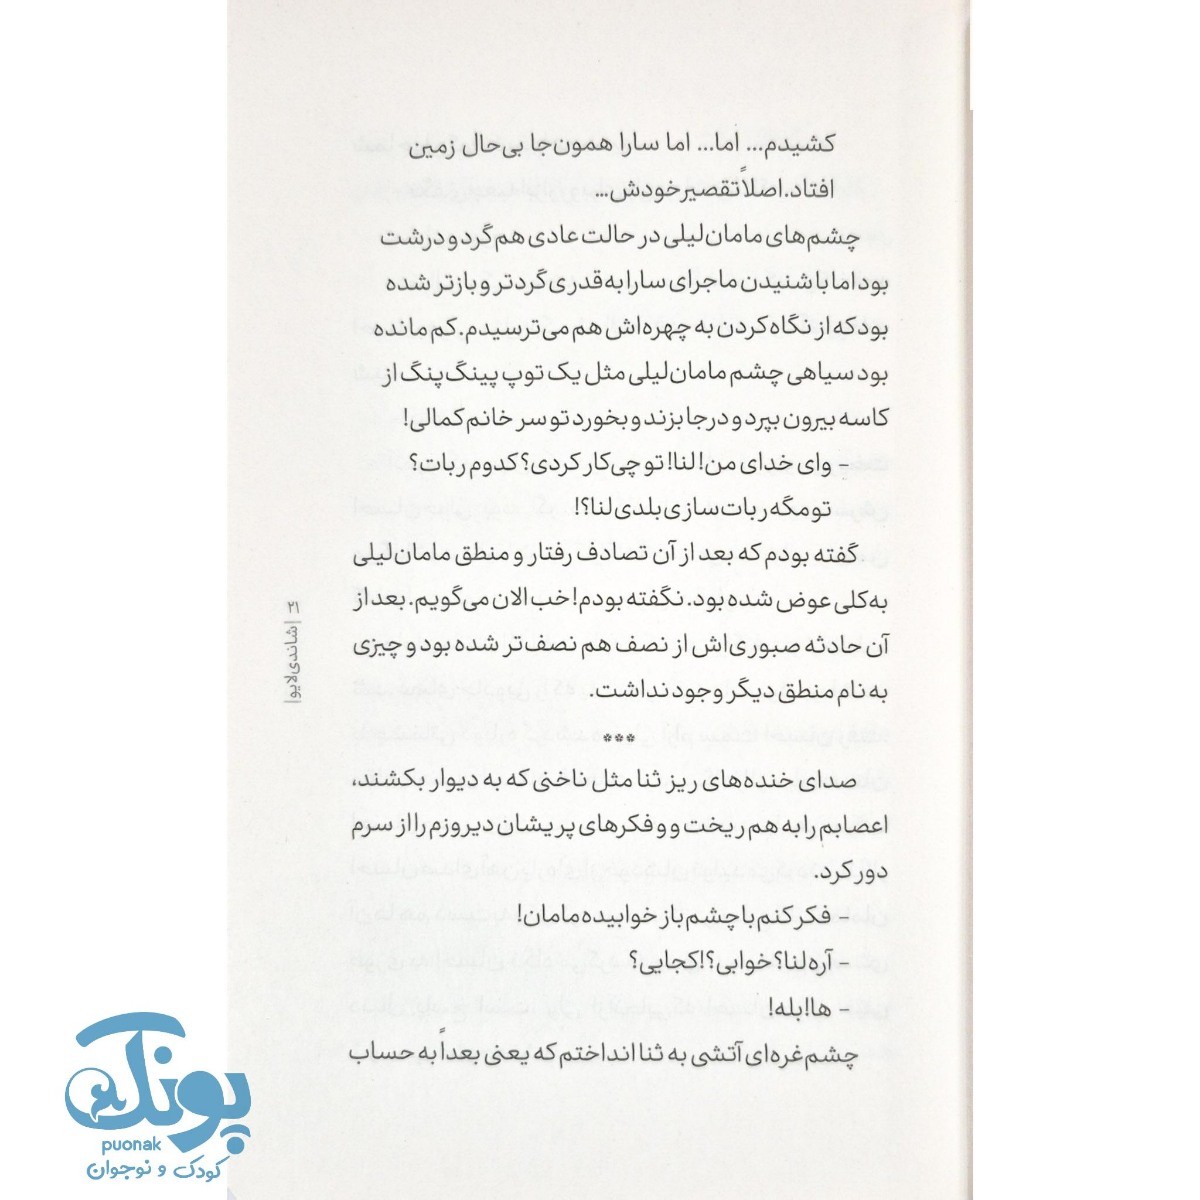 کشیدم... اما... اما سارا همون‌جا بی‌حال زمین
افتاد. اصلاً تقصیر خودش...
چشم‌های مامان لیلی در حالت عادی هم گرد و درشت
بود اما با شنیدن ماجرای سارا به قدری گردتر و بازتر شده
بود که از نگاه کردن به چهره‌اش هم می‌ترسیدم. کم مانده
بود سیاهی چشم مامان لیلی مثل یک توپ پینگ‌پنگ از
کاسه بیرون بپرد و درجا بزند و بخورد تو سر خانم کمالی!
- وای خدای من! لنا! تو چی‌کار کردی؟ کدوم ربات؟
تو مگه ربات‌سازی بلدی لنا؟!
گفته بودم که بعد از آن تصادف رفتار و منطق مامان لیلی
به‌کلی عوض شده بود. نگفته بودم! خب الان می‌گویم. بعد از
آن حادثه صبوری‌اش از نصف هم نصف‌تر شده بود و چیزی
به نام منطق دیگر وجود نداشت.
***
صدای خنده‌های ریز ثنا مثل ناخنی که به دیوار بکشند،
اعصابم را به هم ریخت و و فکرهای پریشان دیروزم را از سرم
دور کرد.
- فکر کنم با چشم باز خوابیده مامان!
- آره لنا؟ خوابی؟! کجایی؟
- ها! بله!
چشم‌غره‌ای آتشی به ثنا انداختم که یعنی بعداً به حساب
۲۱ | شاندی لایو |
پونک
puonak
کودک و نوجوان